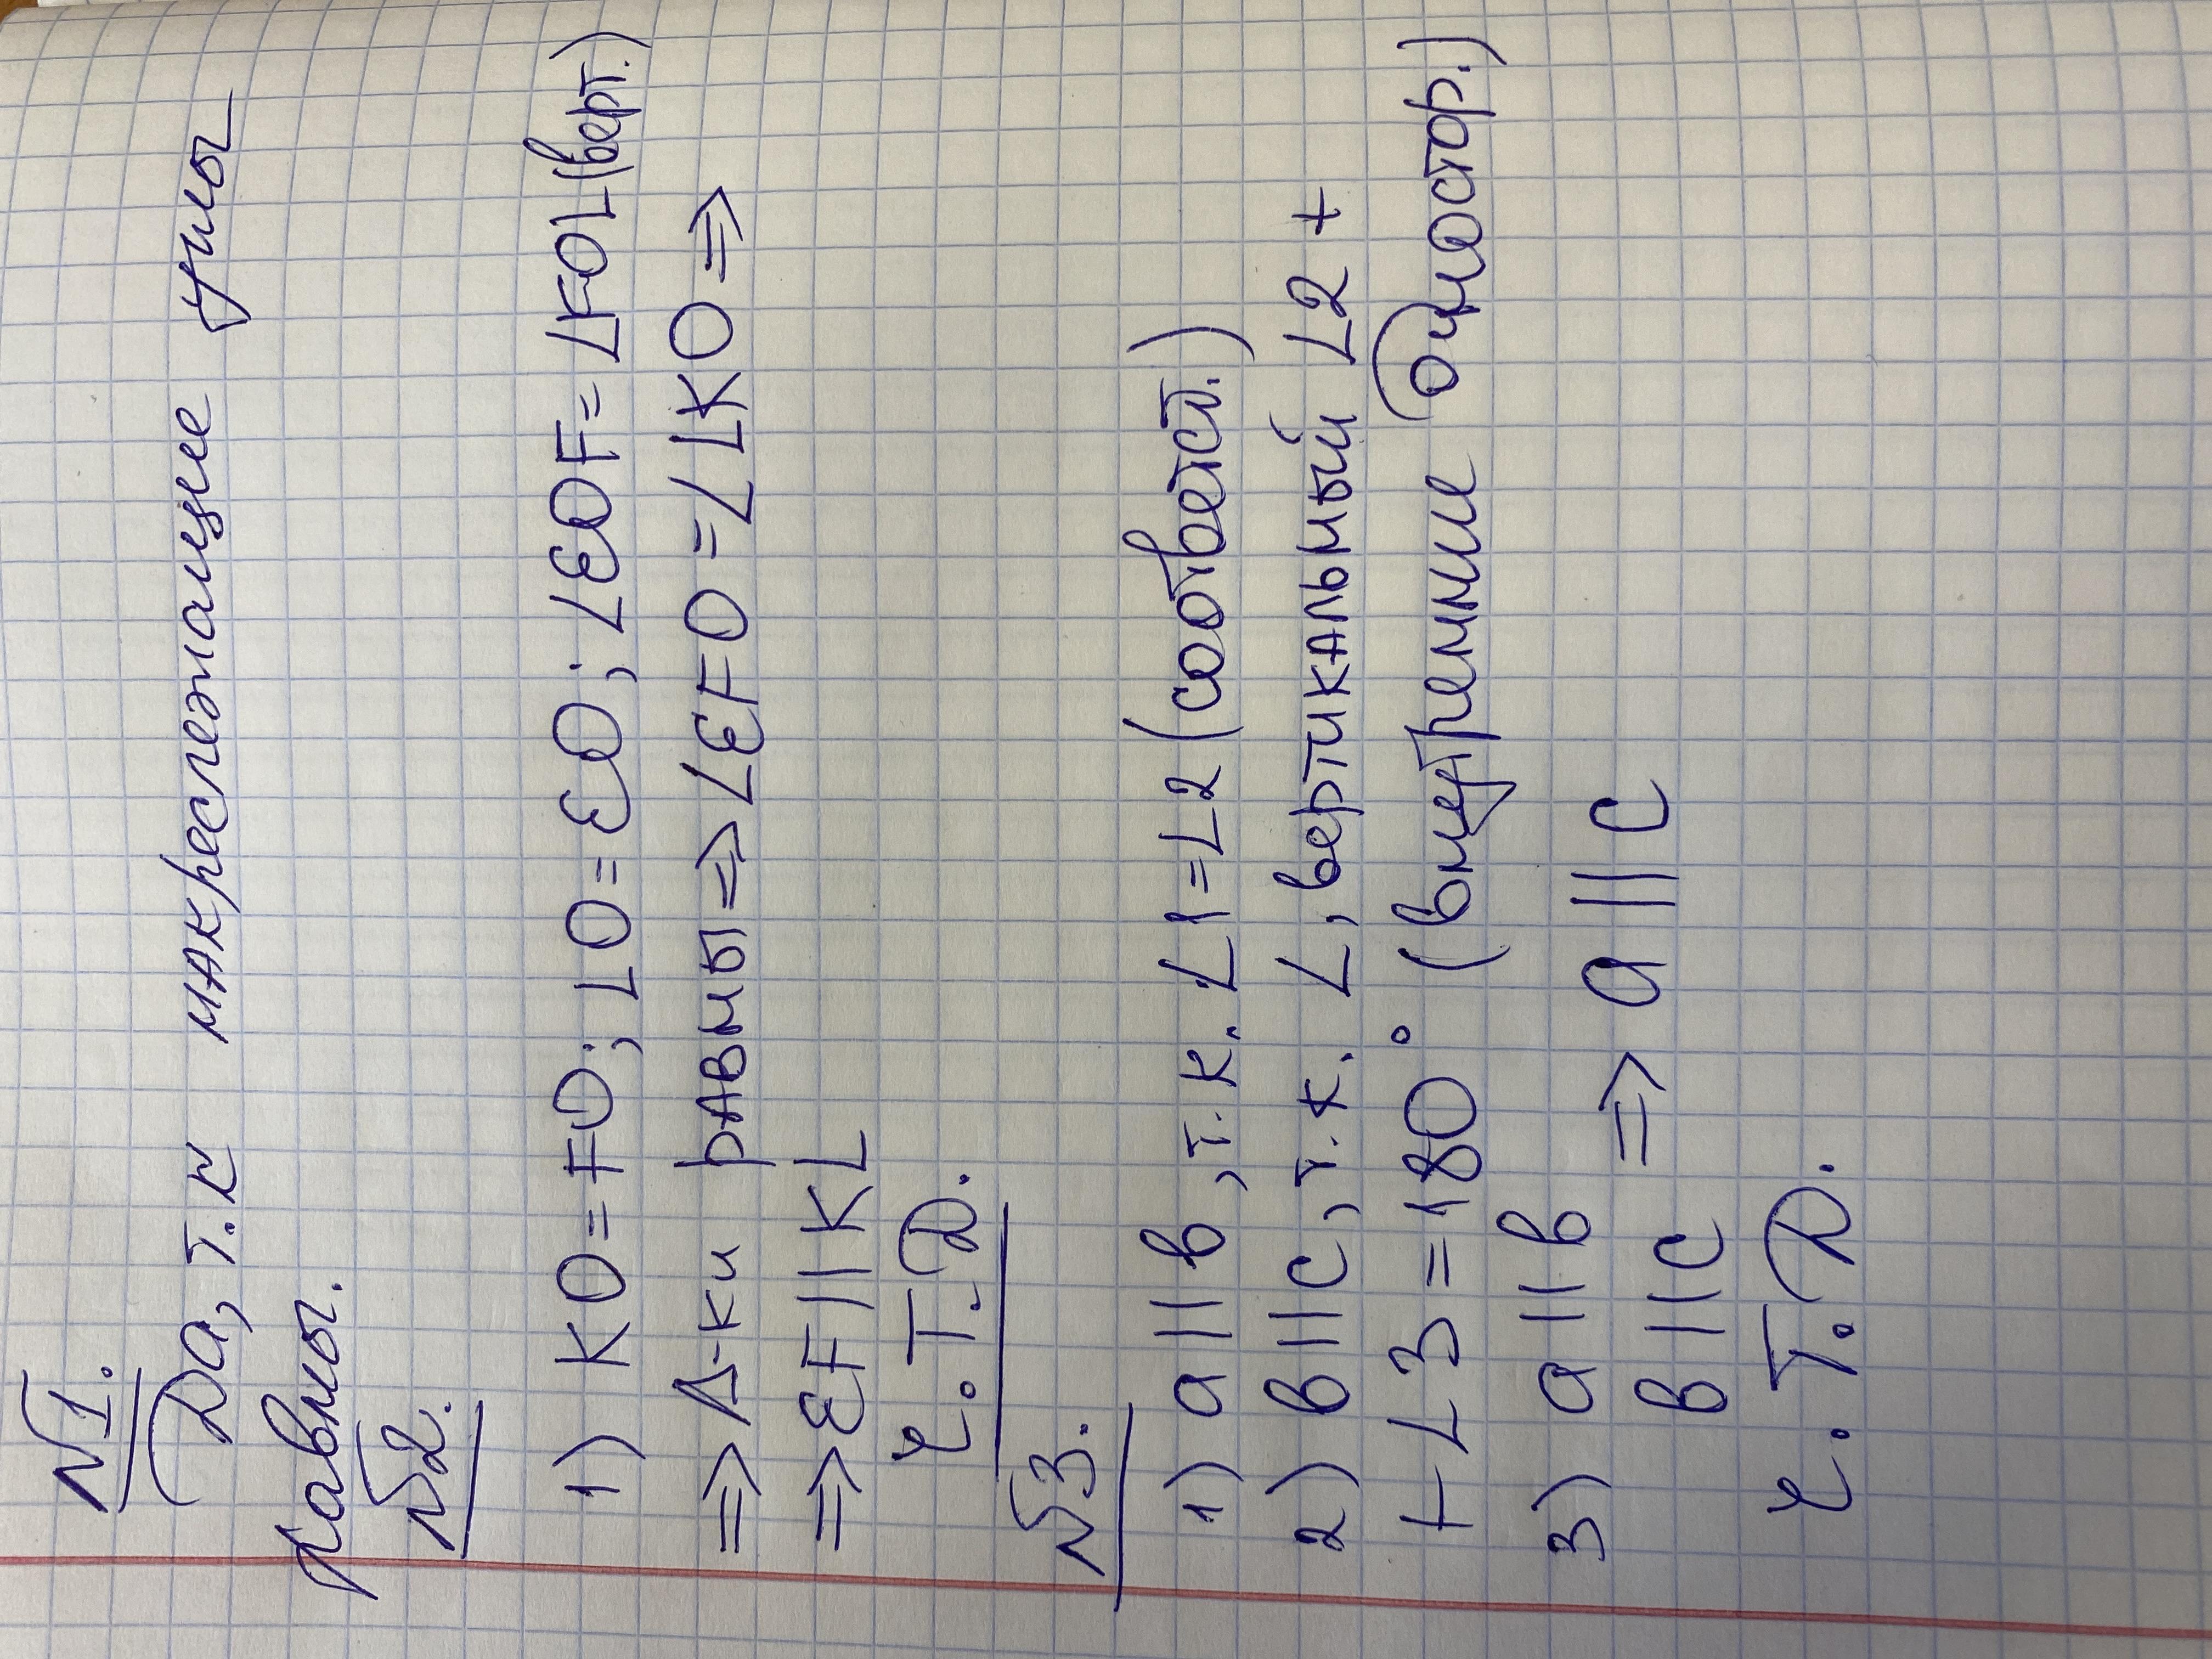 №1.
Да, т.к накреслежащие углы
равны.
№2.
1) KO = FO; LO = EO; ∠EOF = ∠KOL (верт.)
⇒ Δ-ки равны ⇒ ∠EFO = ∠LKO ⇒
⇒ EF || KL
Ч.Т.Д.
№3.
1) a || b, т.к. ∠1 = ∠2 (соответст.)
2) b || c, т.к. ∠, вертикальный ∠2 +
+ ∠3 = 180° (внутренние одностор.)
3) a || b ⇒ a || c
b || c
Ч.Т.Д.